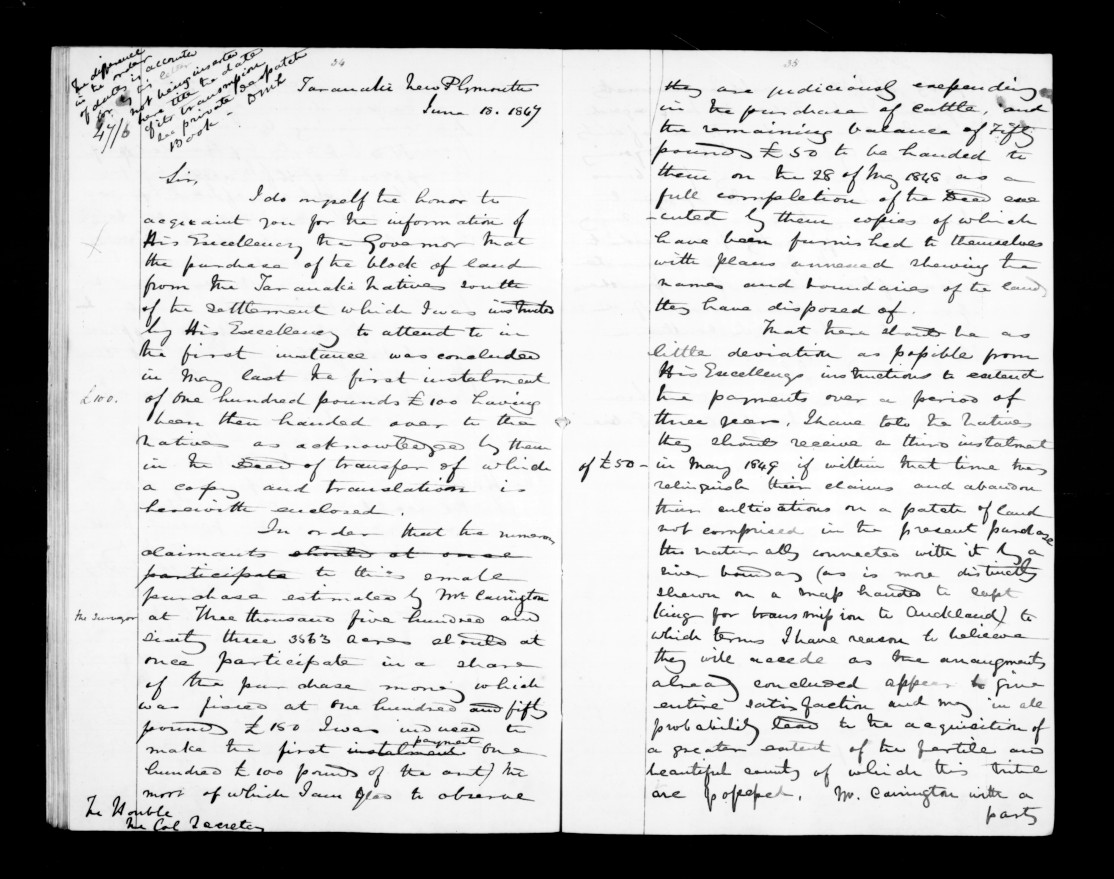 The difference
in the order
of dates is accounted
for by this letter
not being inserted
here till the date
of its transmission
see private Despatch
Book -
DMcL
47/6
34
Taranaki New Plymouth
June 18. 1847
Sir,
I do myself the honor to
acquaint you for the information of
His Excellency the Governor that
the purchase of the block of land
from the Taranaki Natives south
of the settlement which I was instructed
by His Excellency to attend to in
the first instance was concluded
in May last the first instalment
£100.
of one hundred pounds £100 having
been then handed over to the
natives as acknowledged by them
in the Deed of transfer of which
a copy and translation is
herewith enclosed.
In order that the numerous
claimants should at once
participate to this small
purchase estimated by Mr Carrington
the Surveyor
at Three thousand five hundred and
sixty three 3563 acres should at
once participate in a share
of the purchase money which
was fixed at one hundred and fifty
pounds £150 I was induced to
make the first instalment payment one
hundred £100 pounds of the amt) the
most of which I am glad to observe
The Honble
The Col Secretary
35
they are judiciously expending
in the purchase of cattle, and
the remaining balance of Fifty
pounds £50 to be handed to
them on the 28 of May 1848 as a
full completion of the Deed exe
-cuted by them copies of which
have been furnished to themselves
with plans annexed shewing the
names and boundaries of the land
they have disposed of.
That there should be as
little deviation as possible from
His Excellencys instructions to extend
the payments over a period of
three years, I have told the Natives
they should receive a third instalment
of £50 - in May 1849 if within that time they
relinquish their claims and abandon
their cultivations on a patch of land
not comprised in the present purchase
tho naturally connected with it by a
river boundary (as is more distinctly
shewn on a map handed to Capt
King for transmission to Auckland) to
which terms I have reason to believe
they will accede as the arrangments
already concluded appear to give
entire satisfaction and may in all
probability lead to the acquisition of
a greater extent of the fertile and
beautiful county of which this tribe
are possessed. Mr. Carrington with a
party